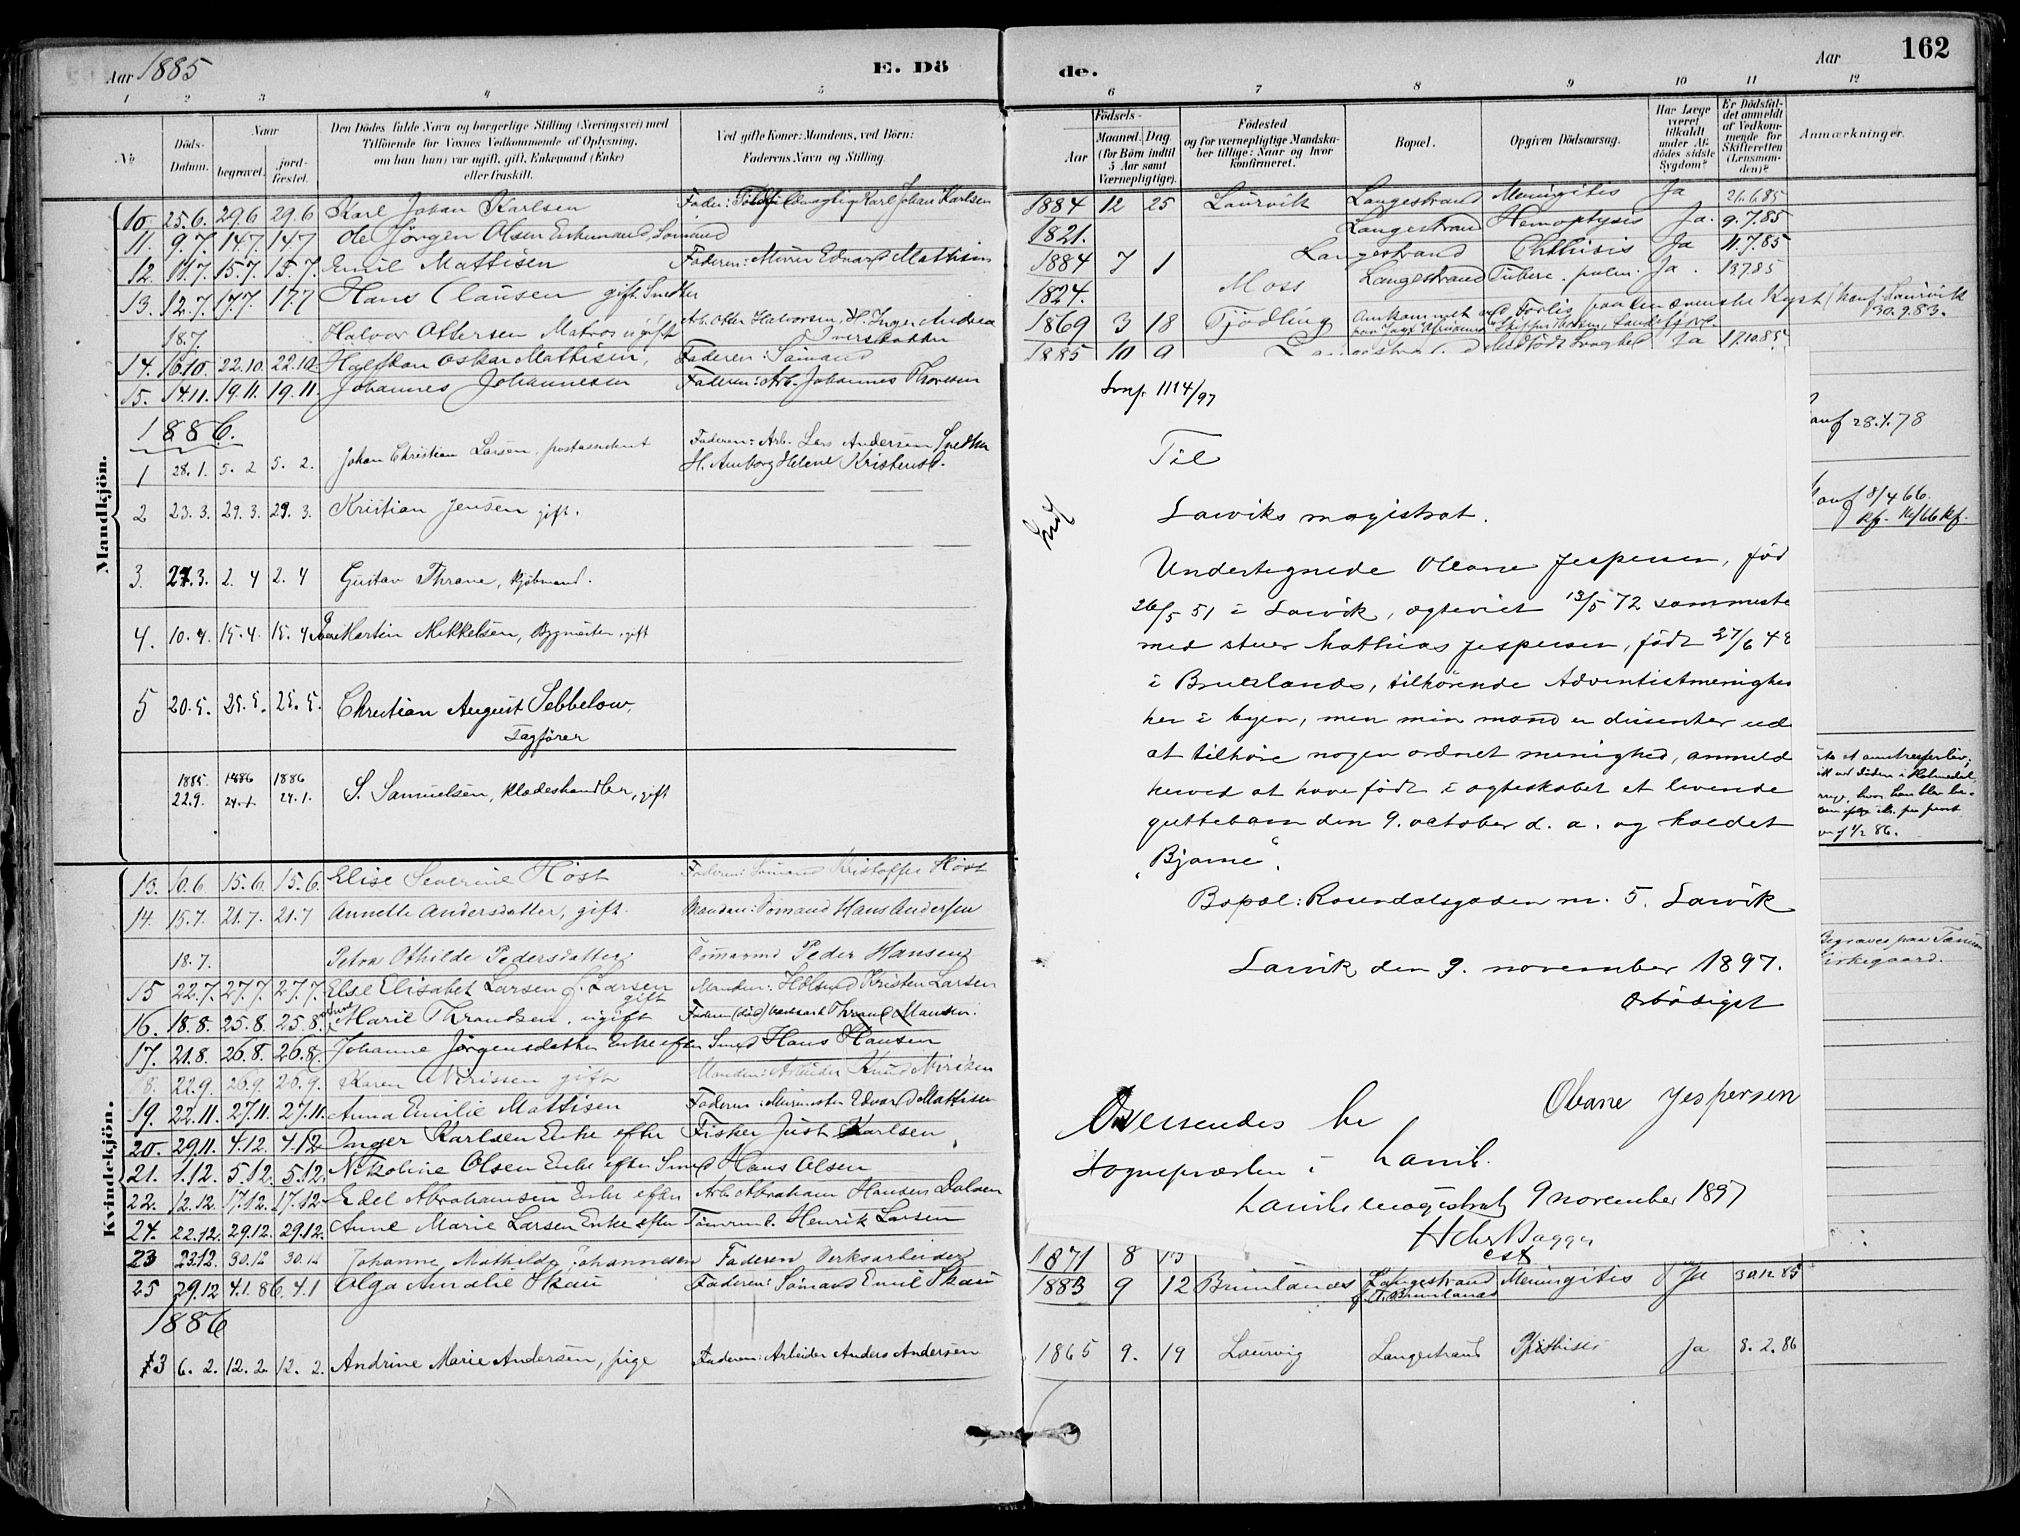 Aar 1885
E. Dö
de.
Aar
162
1 2 3 4 5
6 7 8 9 10 11 12
No
Döds-Datum.
Naar
begravet.
jordfæstet.
Den Dödes fulde Navn og borgerlige Stilling (Næringsvei) med
Tilföiende for Voxnes Vedkommende af Oplysning,
om han (hun) var ugift, gift, Enkemand (Enke)
eller fraskilt.
Ved gifte Koner: Mandens, ved Börn:
Faderens Navn og Stilling.
Födsels-
Aar
Maaned. Dag.
(for Börn indtil
5 Aar samt
Værnepligtige).
Födested
og for værnepligtige Mandskaber
tillige: Naar og hvor
konfirmeret.
Bopæl.
Opgiven Dödsaarsag.
Har Læge
været
tilkaldt
under Afdödes
sidste
Sygdom?
Er Dödsfaldet
anmeldt
af Vedkommende
for
Skifteretten
(Lensmanden)?
Anmærkninger.
Mandkjön.
10. 25.6. 29.6 29.6 Karl Johan Karlsen Fader: Karl Johan Karlsen 1884 12 25 Laurvik Langestrand Meningitis Ja 26.6.85
11. 9.7. 14.7. 14.7 Ole Jörgen Olsen Enkemand, Sömand 1821. Langestrand Hemoptysis Ja. 9.7.85
12. 11.7. 15.7. 15.7. Emil Mattisen Faderen: Murer Edvard Mattisen 1884 7 1 Langestrand Phthisis Ja 11.7.85
13. 12.7. 17.7. 17.7 Hans Clausen gift. Smed 1824. Moss Langestrand Tuberc. pulm. Ja. 13.7.85
18.7. Halvor Ottersen Matros ugift Arb. Otter Halvorsen, H. Inger Andrea Iversdatter 1869 3 18 Tjödling Omkommet ved Forlis paa den svenske Kyst konf. Laurvik 30.9.83.
14. 16.10. 22.10. 22.10. Halfdan Oskar Mattisen, Faderen: Sömand 1885 10 9 Ja 17.10.85
15. 14.11. 19.11. 19.11. Johannes Johannesen Faderen: Arb. Johannes Thoresen
1886.
1 28.1. 5.2 5.2. Johan Christian Larsen, postassistent Faderen: Arb. Lars Andersen
H. Helene Kristensd.
2 23.3. 29.3. 29.3. Kristian Jensen gift.
3. 27.3. 2.4 2.4 Gustav Thrane, Kjöbmand.
4. 10.4. 15.4. 15.4 Martin Mikkelsen, Bygmester, gift
5 20.5. 25.5. 25.5. Christian August Sebbelow,
Tagfører
1885. 1886 1886
22.9. 24.1. 24.1. S. Samuelsen, Klædeshandler, gift
Kvindekjön.
13. 10.6. 15.6. 15.6. Elise Severine Höst Faderen: Sömand Kristoffer Höst
14. 15.7. 21.7. 21.7 Annette Andersdatter, gift. Manden: Sömand Hans Andersen
18.7. Petra Othilde Pedersdatter Tömmermd Peder Hansen
15 22.7. 27.7. 27.7. Else Elisabet Larsen f. Larsen gift Manden: Kristen Larsen
16. 18.8. 25.8. 25.8. Marie Thrandsen, ugift Faderen (död)
17. 21.8. 26.8. 26.8. Johanne Jörgensdatter Enke efter Smed Hans Hansen
8. 22.9. 26.9. 26.9. Karen gift Manden: Arbeider Knud
19. 22.11. 27.11. 27.11. Anna Emilie Mattisen Faderen: Murmester Edvard Mattisen
20. 29.11. 4.12. 4.12 Inger Karlsen Enke efter Fisker Just Karlsen
21. 1.12. 5.12. 5.12. Nikoline Olsen Enke efter Smed Hans Olsen
22. 12.12. 17.12. 17.12. Edel Abrahamsen Enke efter Arb. Abraham Hansen Dalsen
24. 22.12. 29.12. 29.12. Anne Marie Larsen Enke efter Tömrmd. Henrik Larsen
23 23.12. 30.12 30.12 Johanne Mathilde Johannesen Faderen Verksarbeider 1871 8
25 29.12 4.1.86. 4.1 Olga Amalie Skau Faderen: Sömand Emil Skau 1883 9 12 Brunlanæs Langestrand Meningitis Ja 30.12.85
1886
3 6.2. 12.2. 12.2. Andrine Marie Andersen, pige Faderen: Arbeider Anders Andersen 1865 9. 19 Laurvig Langestrand Phthisis Ja 8.2.86
Jnnf. 1114/97
Til
Larviks magistrat.
Undertegnede Oleane Jespersen, fød
26/5 51 i Larvik, ægteviet 13/5 72 sammeste
med stuer Mathias Jespersen, født 27/6 48
i Brunlanæs, tilhørende Adventistmenighe
her i byen, men min mand er dissenter ud
at tilhøre nogen ordnet menighed, anmeld
herved at have født i ægteskabet et levende
guttebarn den 9. october d. a. og kaldet
„Bjarne“.
Bopæl: Rosendalsgaden nr. 5. Larvik
Larvik den 9. november 1897.
Ærbødigst
Oleane Jespersen
Oversendes hr
sognepresten i Larvik.
Larviks magistrat 9 november 1897
H Chr Bagge
cst
konf 28.9.78
konf 8/4 66.
Begraves paa Tanum
Kirkegaard.